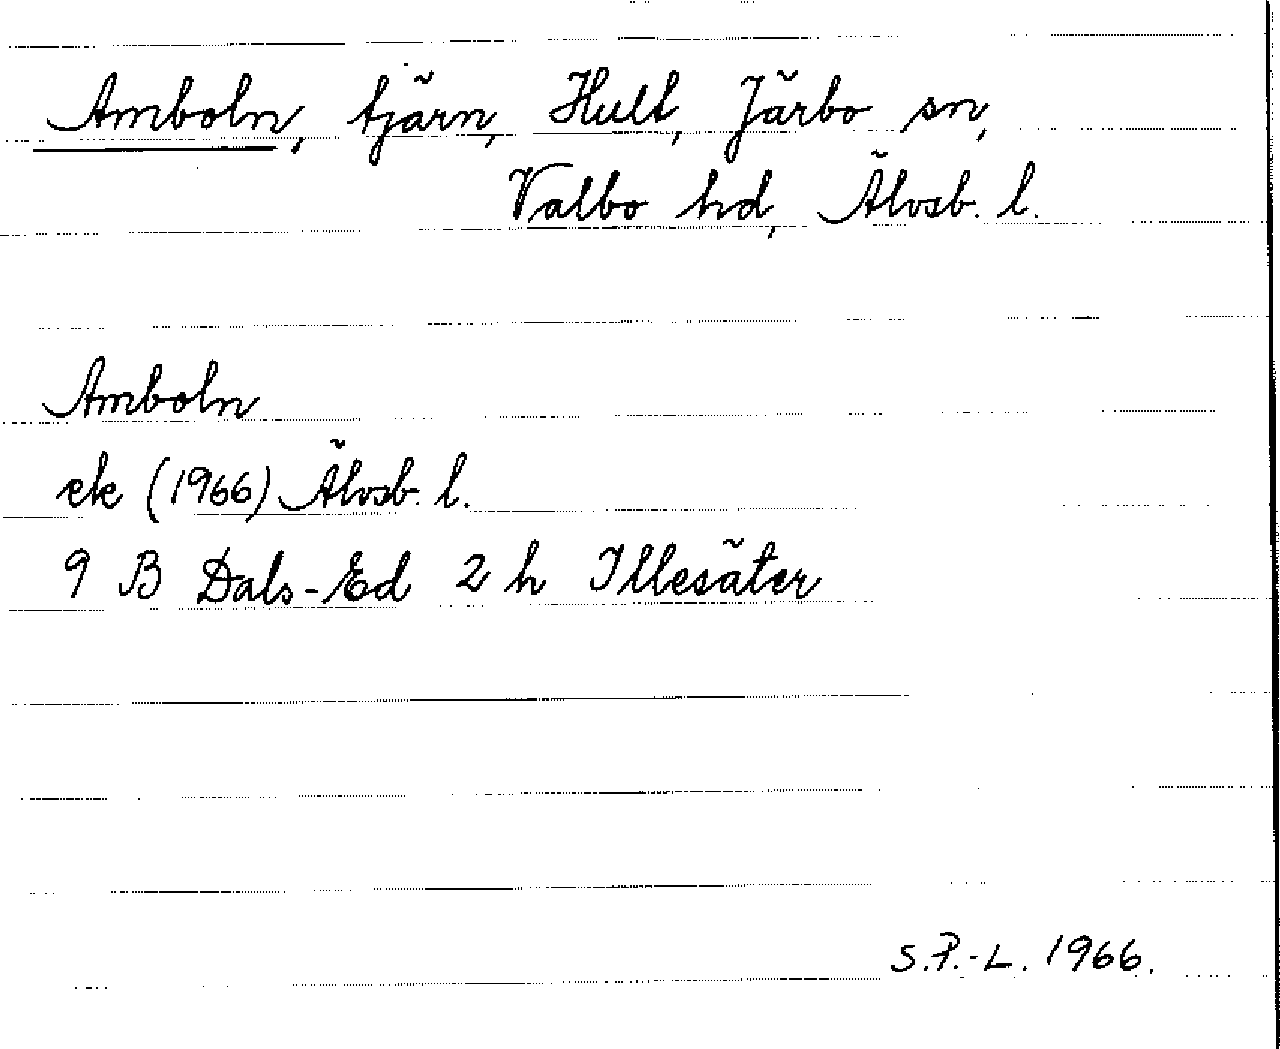 Amboln, tjärn, Hult, Järbo sn,
Valbo hd, Älvsb. l.
Amboln
ek (1966) Älvsb. l.
9 B Dals-Ed 2 h Illesäter
S.P.-L. 1966.